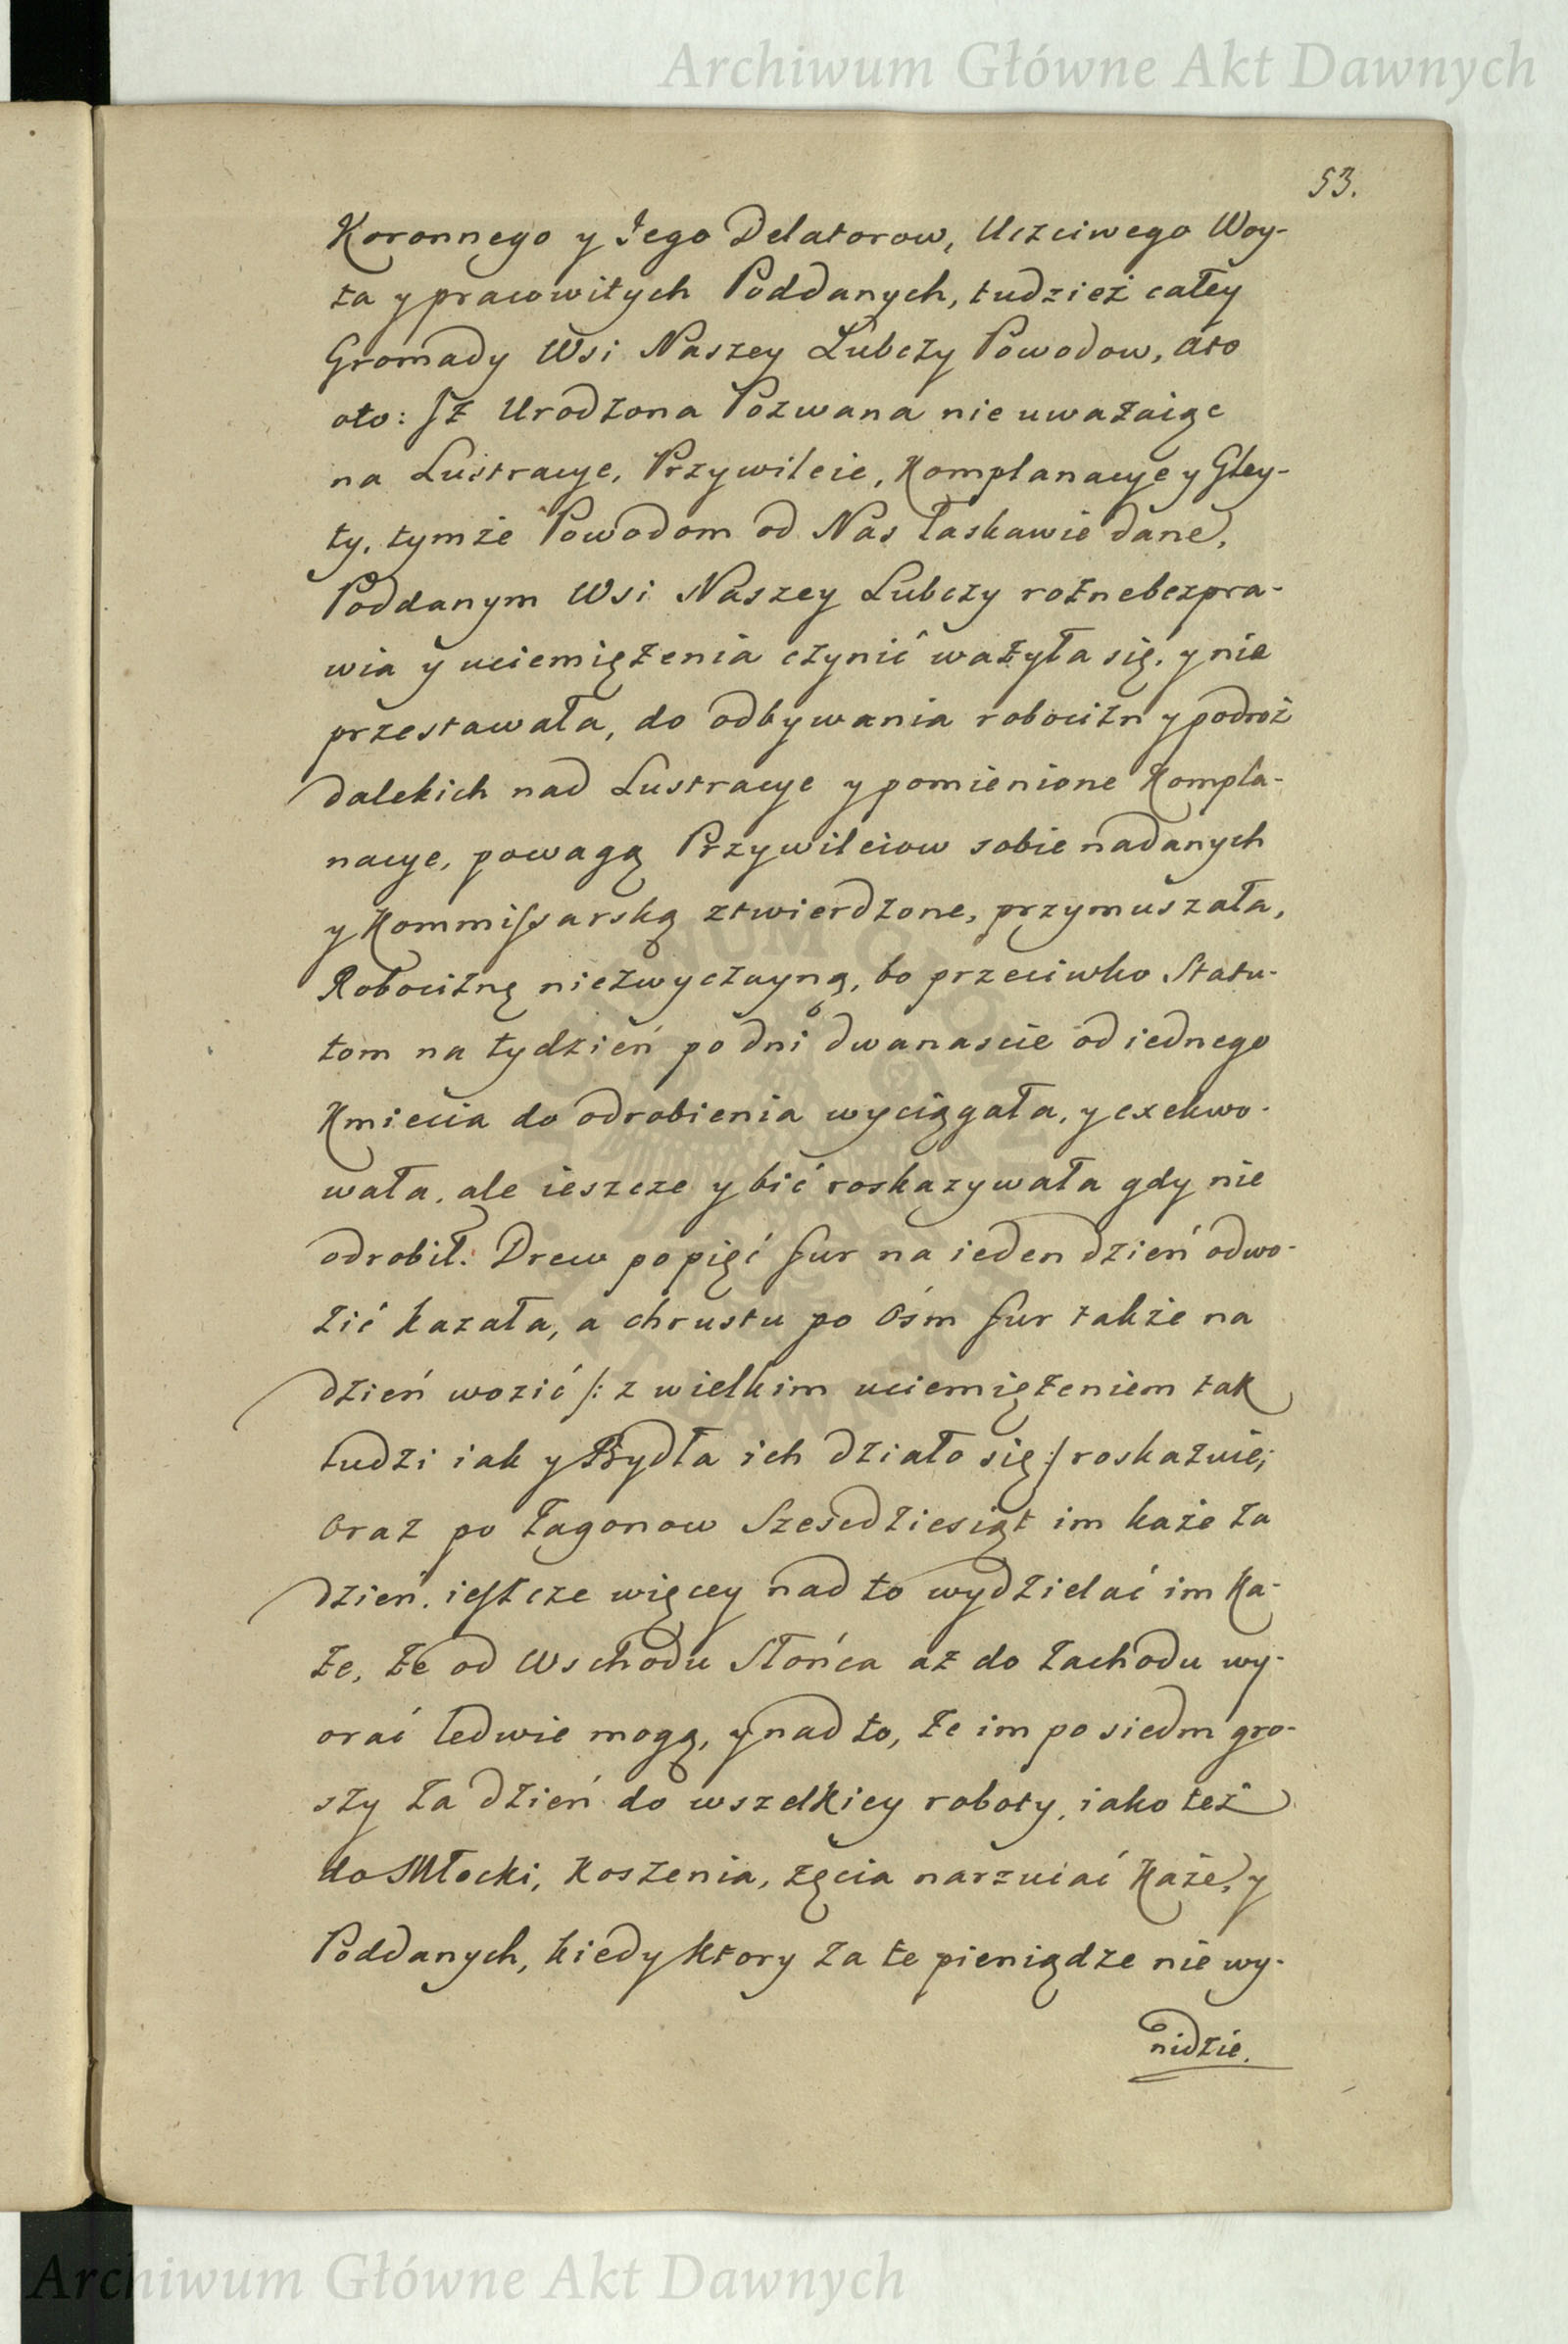 Archiwum Główne Akt Dawnych
53.
Koronnego y Jego Delatorow, Uczciwego Woy-
ta y pracowitych Poddanych, tudzież całey
Gromady Wsi Naszey Lubczy Powodow, ato
oto: Jż Urodzona Pozwana nie uważaiąc
na Lustracye, Przywileie, Komplanacye y Gley-
ty, tymże Powodom od Nas łaskawie dane,
Poddanym Wsi Naszey Lubczy rożne bezpra-
wia y uciemiężenia czynić ważyła się, y nie
przestawała, do odbywania robocizn y podroż
dalekich nad Lustracye y pomienione Kompla-
nacye, powagą Przywileiow sobie nadanych
y Kommissarską ztwierdzone, przymuszała,
Robociznę niezwyczayną, bo przeciwko Statu-
tom na tydzień po dni dwanascie od iednego
Kmiecia do odrobienia wyciągała, y exekwo-
wała, ale ieszcze y bić roskazywała gdy nie
odrobił. Drew po pięć fur na ieden dzień odwo-
zić kazała, a chrustu po ośm fur także na
dzień wozić /: z wielkim uciemiężeniem tak
ludzi iak y Bydła ich działo się :/ roskazuie;
oraz po Zagonow Szescdziesiąt im każe za
dzień, ieszcze więcey nad to wydzielać im ka-
że, że od Wschodu Słońca aż do Zachodu wy-
orać ledwie mogą, y nad to, że im po siedm gro-
szy za dzień do wszelkiey roboty, iako też
do Młocki, Koszenia, zęcia narzucać każe, y
Poddanych, kiedy ktory za te pieniądze nie wy-
nidzie.
Archiwum Główne Akt Dawnych